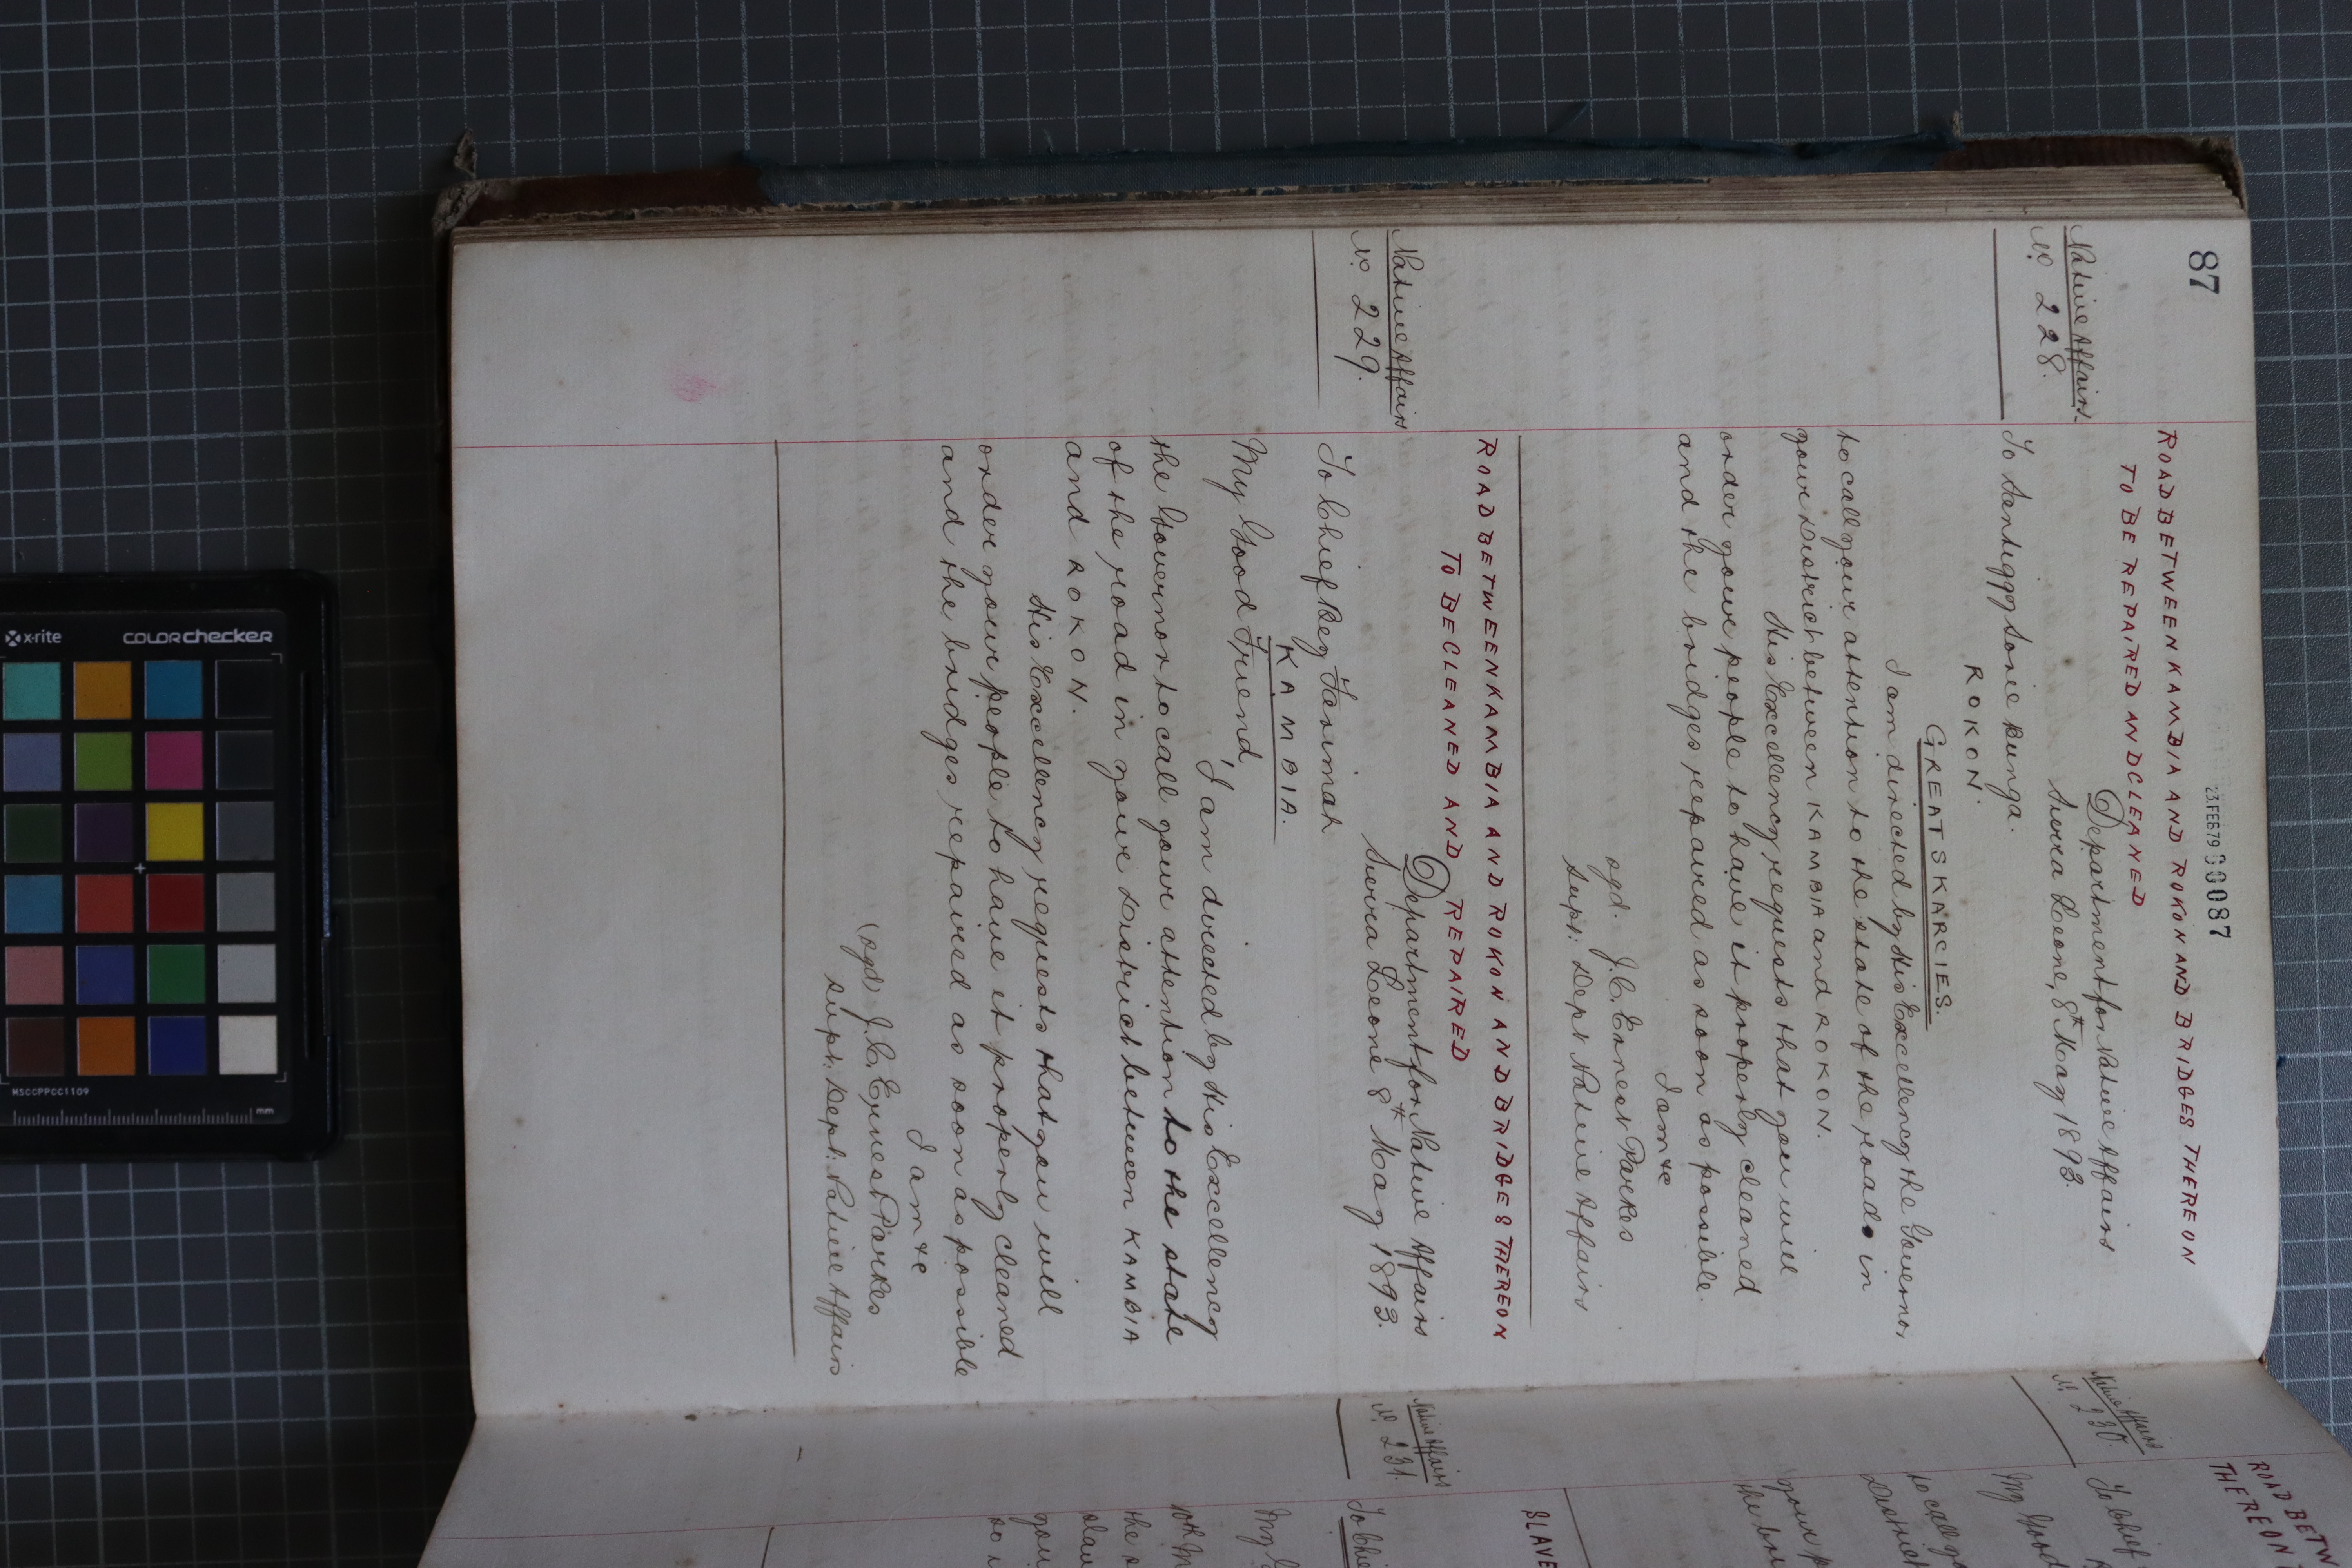 87
23.FEB79 00087
ROAD BETWEEN KAMBIA AND ROKON AND BRIDGES THEREON
TO BE REPAIRED AND CLEANED
Native Affairs
No 228.
Department for Native Affairs
Sierra Leone, 8th May 1893.
To Santiggy Sorie Bunga.
ROKON.
GREAT SKARCIES.
I am directed by His Excellency the Governor
to call your attention to the state of the roads in
your District between KAMBIA and ROKON.
His Excellency requests that you will
order your people to have it properly cleaned
and the bridges repaired as soon as possible.
I am &c
sgd. J.C. Ernest Parkes
Supt: Dept Native Affairs
ROAD BETWEEN KAMBIA AND ROKON AND BRIDGES THEREON
TO BE CLEANED AND REPAIRED
Native Affairs
No 229.
Department for Native Affairs
Sierra Leone 8th May 1893.
To Chief Bey Farimah
KAMBIA.
My Good Friend
I am directed by His Excellency
the Governor to call your attention to the state
of the road in your District between KAMBIA
and ROKON.
His Excellency requests that you will
order your people to have it properly cleaned
and the bridges repaired as soon as possible
I am &c
(sgd) J.C. Ernest Parkes
Supt. Dept. Native Affairs
ROAD BETW
THEREON
Native Affairs
No 230.
To Chief
My Good
to call yo
District
your p
the bri
SLAVE
Native Affairs
No 231.
To Chie
My G
10th M
the s
slav
you
so
x-rite
colorchecker
MSCCPPCC1109
mm